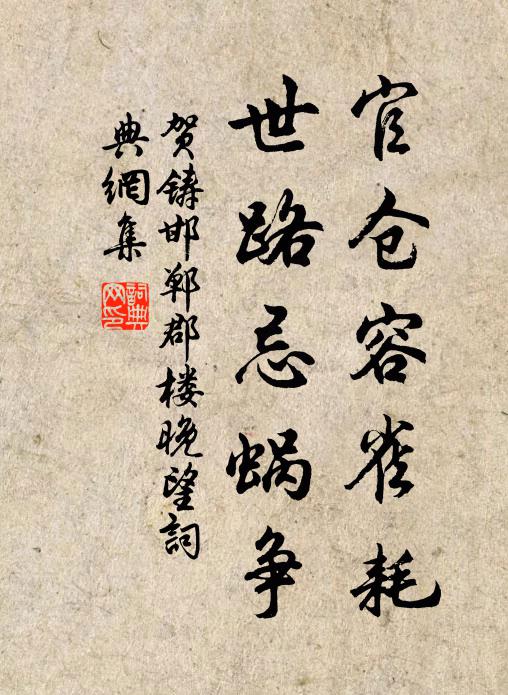 官仓容雀耗
世路忌蜗争
贺铸邯郸郡楼晚望词
典網集
詞典網印